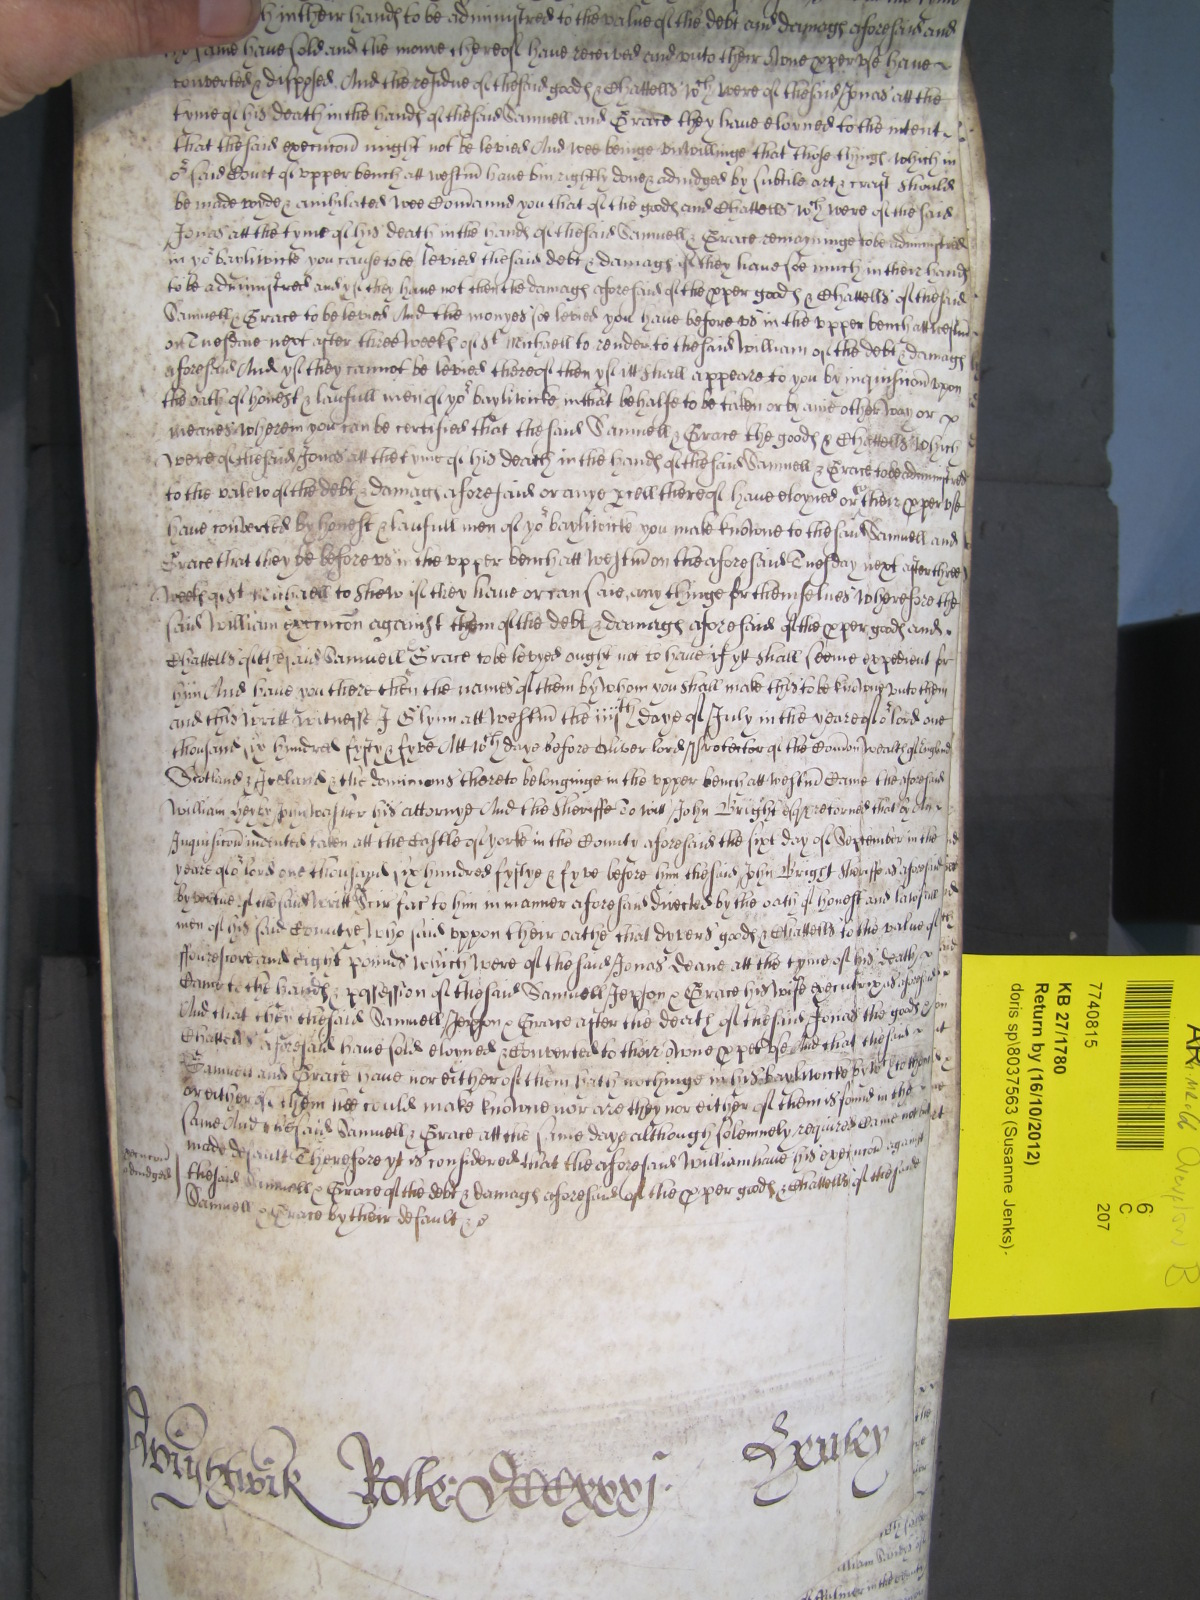 in their hands to be administred to the value of the debt and damags aforesaid and
same have sold and the monie thereof have received and unto their owne pper use have
converted & disposed And the residue of the said goods & Chattells wch were of the said Jonas att the
tyme of his death in the hands of the said Samuell and Grace they have eloyned to the intent
that the said execucon might not be levied And wee beinge unwillinge that those things which in
or said Court of upper bench att westm have bin rightly done & adiudged by subtile art & craft should
be made voide & anihilated Wee Comaund you that of the goods and Chattells wch were of the said
Jonas att the tyme of his death in the hands of the said Samuell & Grace remaininge to be administred
in yor bayliwicke you cause to be levied the said debt & damags if they have soe much in their hands
to be administred and yf they have not then the damags aforesaid of the pper goods & Chattells of the said
Samuell & Grace to be levied And the monyes soe levied you have before us in the upper bench att westm
on Tuesdaie next after three weeks of St Michaell to render to the said William of the debt & damags
aforesaid And yf they cannot be levied thereof then yf itt shall appeare to you by inquisicon upon
the oath of honest & laufull men of yor bayliwicke in that behalfe to be taken or by anie other way or
meanes wherein you can be certified that the said Samuell & Grace the goods & Chattells which
were of the said Jonas att the tyme of his death in the hands of the said Samuell & Grace to be administred
to the valew of the debt & damags aforesaid or anye pcell thereof have eloyned or to their pper use
have converted by honest & laufull men of yor bayliwicke you make knowne to the said Samuell and
Grace that they be before us in the upper bench att westm on the aforesaid Tuesday next after three
weeks of St Michaell to shew if they have or can saie any thinge for themselves wherefore the
said William execucon against them of the debt & damags aforesaid of the pper goods and
Chattells of the said Samuell & Grace to be levyed ought not to have if yt shall seeme expedient for
him And have you there then the names of them by whom you shall make this to be knowne unto them
and this writt witnesse J Glynn att westm the iiijth daye of July in the yeare of or lord one
thousand six hundred fyfty & fyve Att wch daye before Oliver lord Protector of the Comon wealth of England
Scotland & Ireland & the dominions thereto belonginge in the upper bench att westm Came the aforesaid
William Henry his attornye And the Sheriffe To witt John Bright esqr returned that by an
Inquisicon indented taken att the Castle of Yorke in the County aforesaid the sixt day of September in the
yeare of or lord one thousand six hundred fyftye & fyve before him the said John Bright Sheriffe as aforesaid
by vertue of the said writt Scir fac to him in manner aforesaid directed by the oath of honest and laufull
men of his said Countye who said uppon their oathe that dyvers goods & Chattells to the value of
ffourescore and eight pounds which were of the said Jonas deane att the tyme of his death
Came to the hands & possession of the said Samuell Jepson & Grace his wife executrix as aforesaid
And that they the said Samuell Jepson & Grace after the death of the said Jonas the goods &
Chattells aforesaid have sold eloyned & Converted to their owne pper use And that the said
Samuell and Grace have nor either of them hath nothinge in his bayliwicke by wch to them
or either of them hee could make knowne nor are they nor either of them is found in the
same And the said Samuell & Grace att the same daye although solemnely required Came not but
made default Therefore yt is considered that the aforesaid William have his execucon against
the said Samuell & Grace of the debt & damags aforesaid of the pper goods & Chattells of the said
Samuell & Grace by their default &c
execucon
adiudged
Wrightwik Rolle DCCCxxxj Exuley
7740815
KB 27/1780
Return by (16/10/2012)
doris sp\8037563 (Susanne Jenks)-
6
C
207